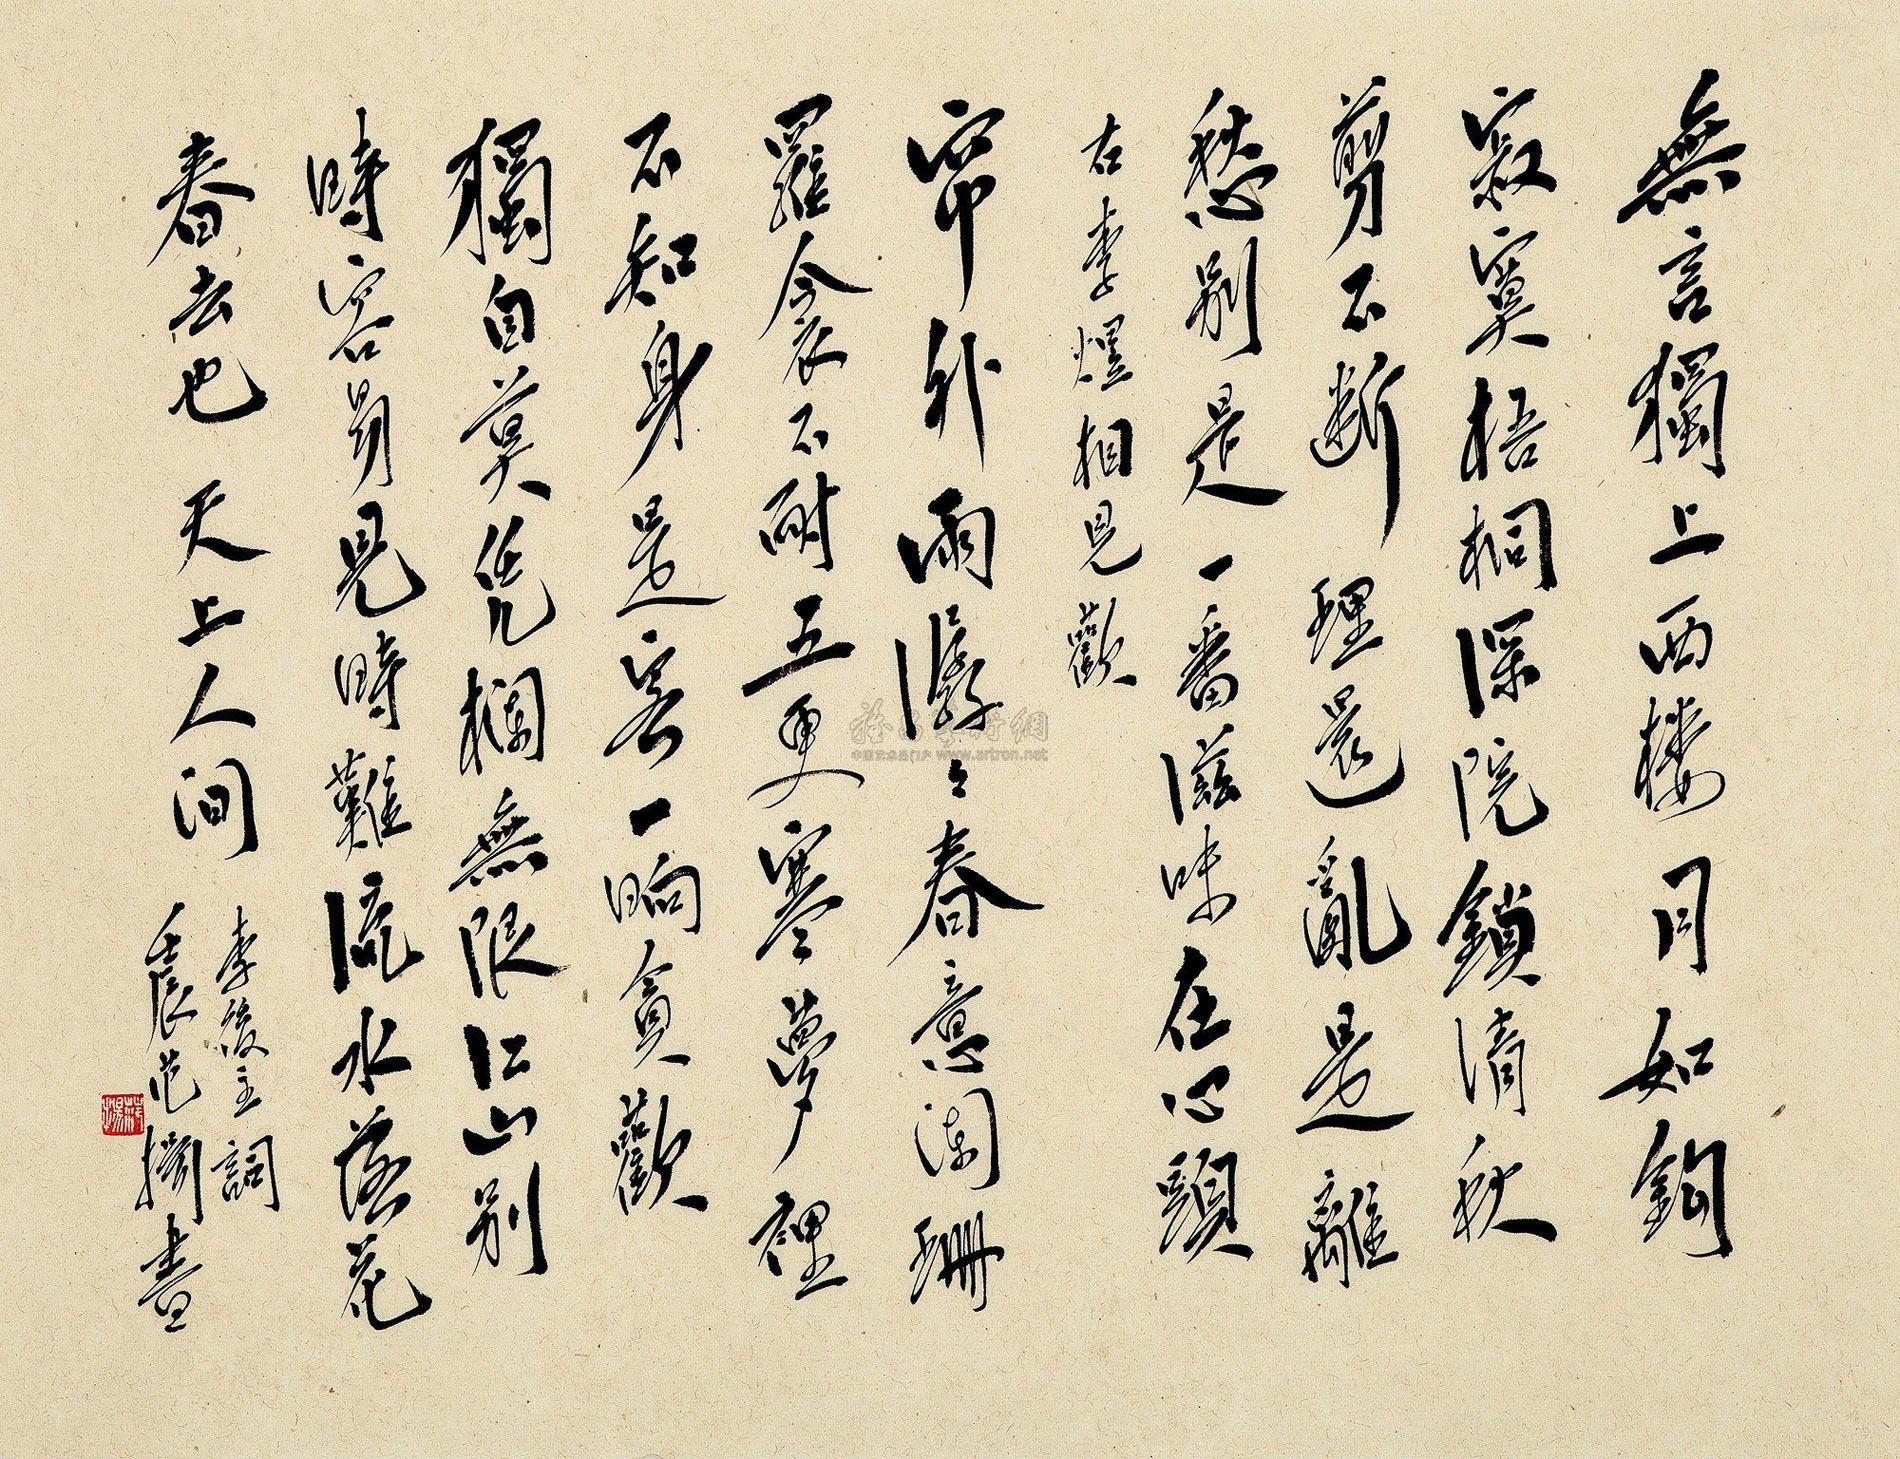 無言獨上西楼月如鈎
寂寞梧桐深院鎖清秋
剪不断理還亂是離
愁別是一番滋味在心頭
右李煜相見歡
帘外雨潺々春意闌珊
羅衾不耐五更寒夢裡
不知身是客一晌貪歡
獨自莫凭欄無限江山別
時容易見時難流水落花
春去也天上人间
李後主詞
壬辰范揚書
www.artron.net